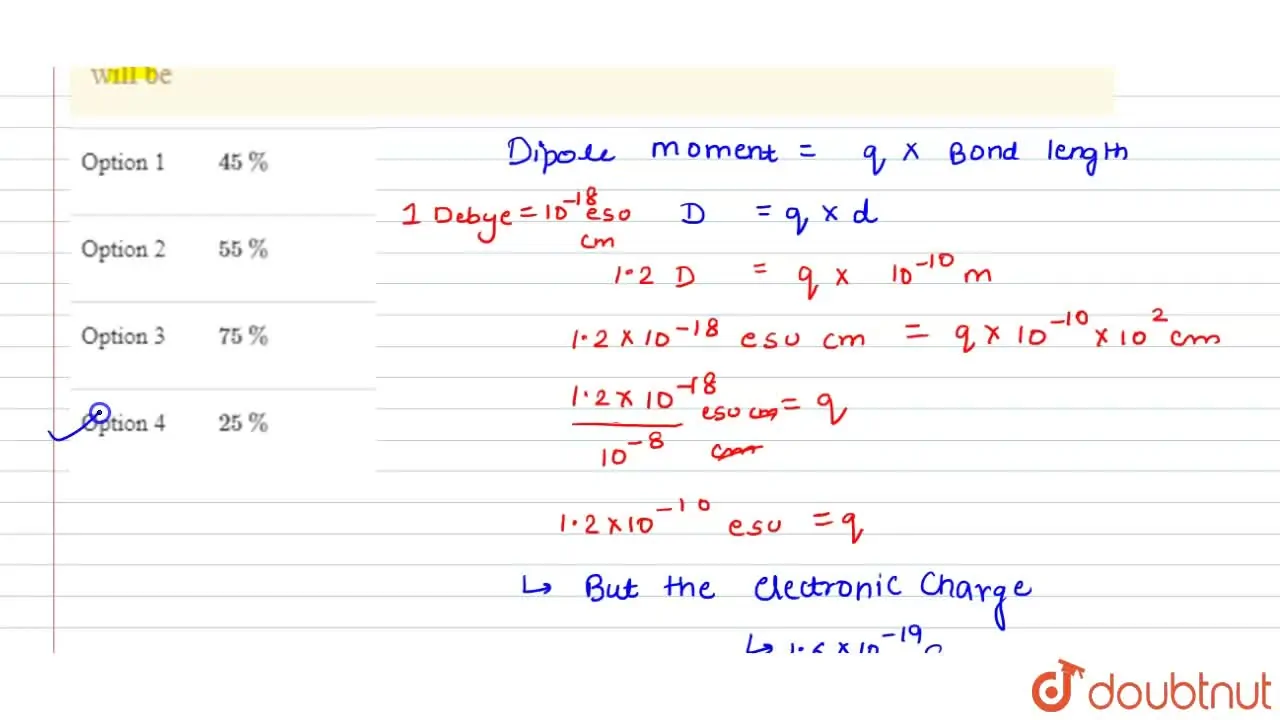 will be
Option 1 45 %
Option 2 55 %
Option 3 75 %
Option 4 25 %
Dipole moment = q × Bond length
1 Debye = 10⁻¹⁸ esu cm D = q × d
1.2 D = q × 10⁻¹⁰ m
1.2 × 10⁻¹⁸ esu cm = q × 10⁻¹⁰ × 10² cm
1.2 × 10⁻¹⁸ esu cm = q
10⁻⁸ cm
1.2 × 10⁻¹⁰ esu = q
↳ But the electronic charge
↳ 1.6 × 10⁻¹⁹
doubtnut